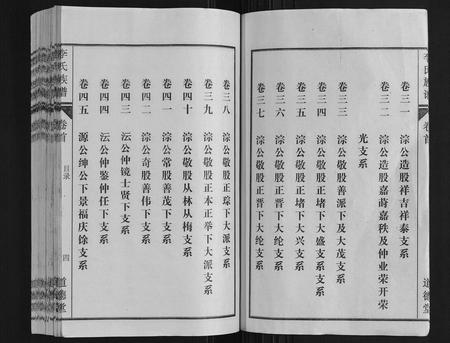 卷三一 淙公造股祥吉祥泰支系
卷三二 淙公造股嘉蒔嘉秩及仲业荣开荣
光支系
卷三三 淙公敬股善派下及大茂支系
卷三四 淙公敬股正堵下大盛支系
卷三五 淙公敬股正堵下大兴支系
卷三六 淙公敬股正晋下大纶支系
卷三七 淙公敬股正晋下大纶支系
李氏族谱 卷首
道德堂
卷三八 淙公敬股正琮下大派支系
卷三九 淙公敬股正本正举下大派支系
卷四十 淙公敬股从林从梅支系
卷四一 淙公常股善茂下支系
卷四二 淙公奇股善伟下支系
卷四三 沄公仲镜士贤下支系
卷四四 沄公仲鉴仲任下支系
卷四五 源公绅公下景福庆馀支系
李氏族谱 卷首 目录 四 道德堂